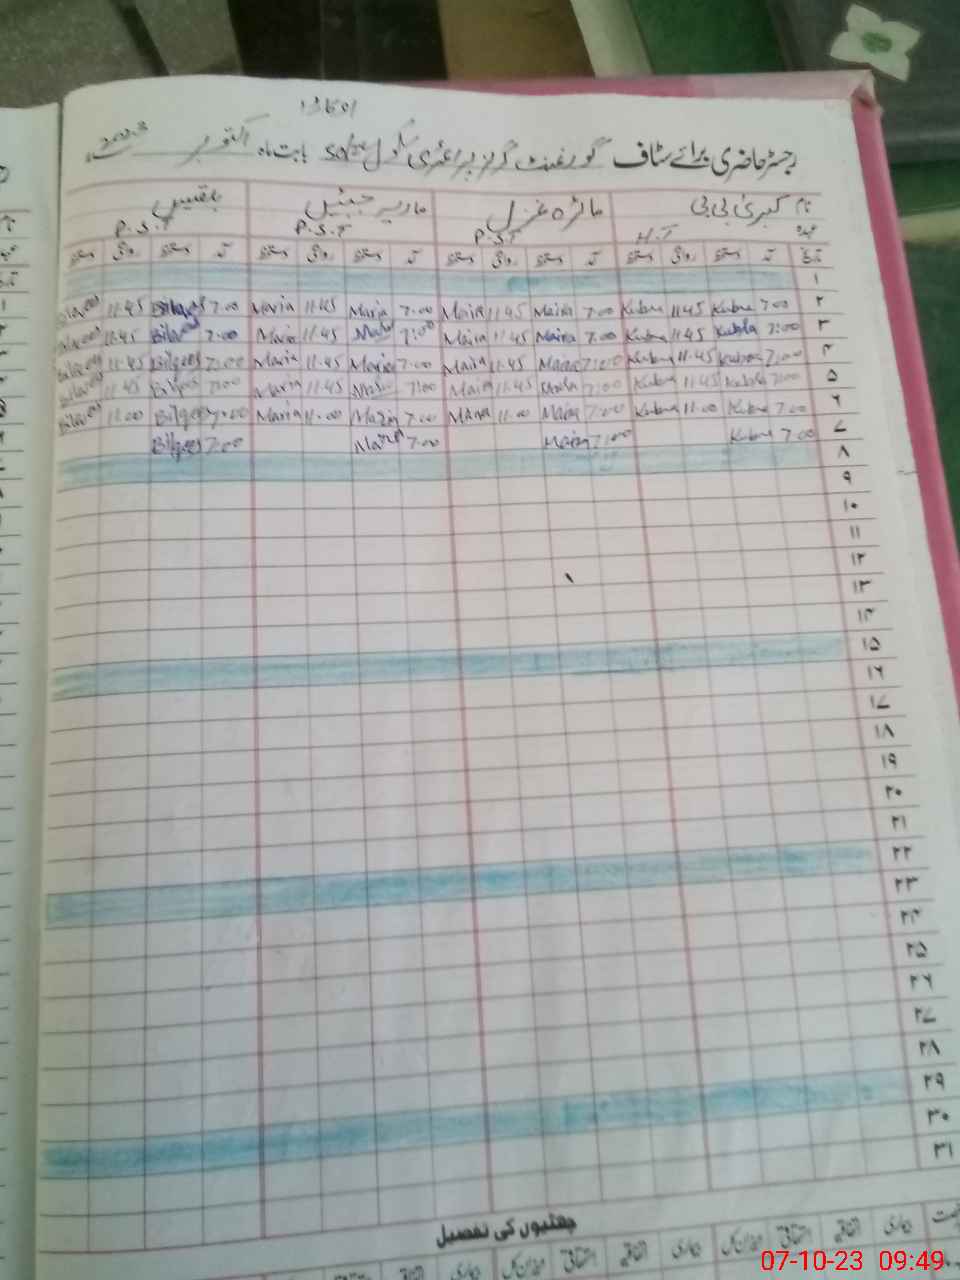 اوکاڑا
رجسٹر حاضری برائے سٹاف گورنمنٹ گرلز پرائمری سکول 50/2L بابت ماہ اکتوبر 2023ء
نام کبریٰ بی بی مائرہ غزل ماریہ جبیں بلقیس
عہدہ H.T P.S.T P.S.T P.S.T
تاریخ آمد دستخط روانگی دستخط آمد دستخط روانگی دستخط آمد دستخط روانگی دستخط آمد دستخط روانگی دستخط
۱
Bilqees 11:45 Bilqees 7:00 Maria 11:45 Maria 7:00 Maira 11:45 Maira 7:00 Kubra 11:45 Kubra 7:00 ۲
Bilqees 11:45 Bilqees 7:00 Maria 11:45 Maria 7:00 Maira 11:45 Maira 7:00 Kubra 11:45 Kubra 7:00 ۳
Bilqees 11:45 Bilqees 7:00 Maria 11.45 Maria 7.00 Maira 11.45 Maira 7:00 Kubra 11.45 Kubra 7:00 ۴
Bilqees 11:45 Bilqees 7:00 Maria 11.45 Maria 7:00 Maira 11:45 Maira 7:00 Kubra 11:45 Kubra 7:00 ۵
Bilqees 11:00 Bilqees 7:00 Maria 11:00 Maria 7:00 Maira 11:00 Maira 7:00 Kubra 11:00 Kubra 7:00 ۶
Bilqees 7:00 Maria 7:00 Maira 7:00 Kubra 7:00 ۷
۸
۹
۱۰
۱۱
۱۲
۱۳
۱۴
۱۵
۱۶
۱۷
۱۸
۱۹
۲۰
۲۱
۲۲
۲۳
۲۴
۲۵
۲۶
۲۷
۲۸
۲۹
۳۰
۳۱
چھٹیوں کی تفصیل
بیماری اتفاقیہ استحقاقی میزان کل بیماری اتفاقیہ استحقاقی میزان کل بیماری اتفاقیہ
07-10-23 09:49